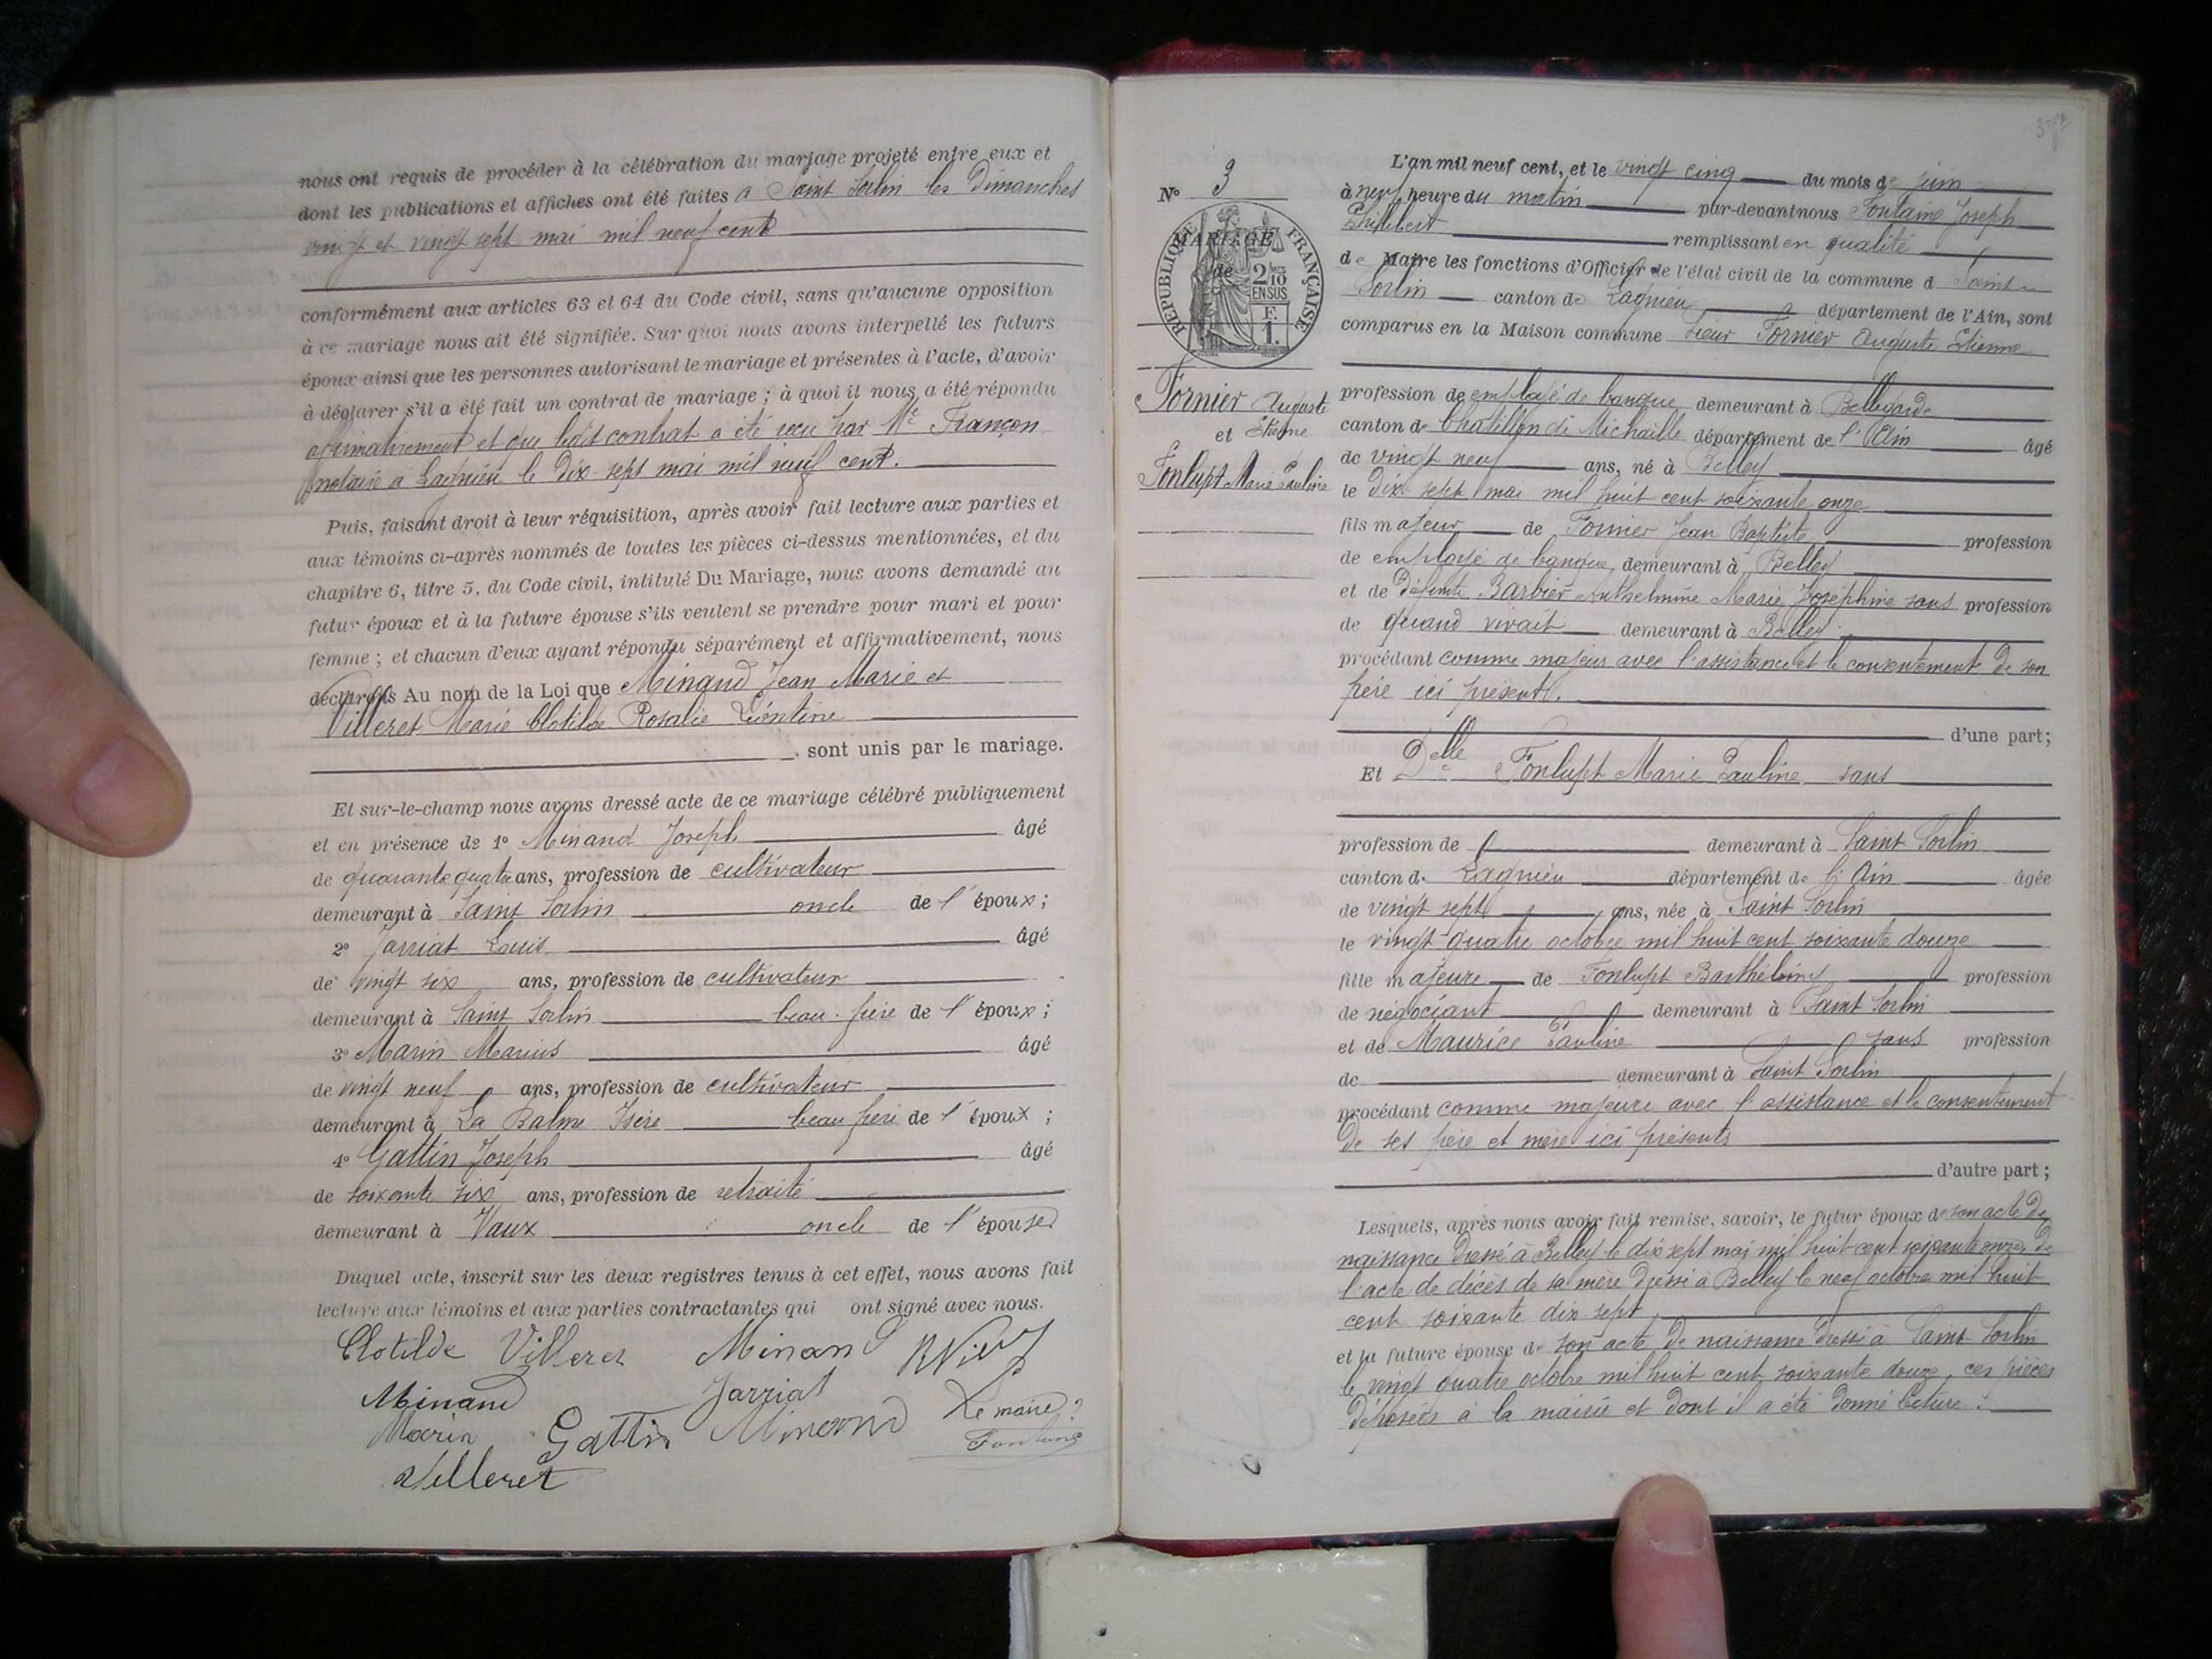 nous ont requis de procéder à la célébration du mariage projeté entre eux et
dont les publications et affiches ont été faites à Saint Sorlin les Dimanches
vingt et vingt sept mai mil neuf cent
conformément aux articles 63 et 64 du Code civil, sans qu'aucune opposition
à ce mariage nous ait été signifiée. Sur quoi nous avons interpellé les futurs
époux ainsi que les personnes autorisant le mariage et présentes à l'acte, d'avoir
à déclarer s'il a été fait un contrat de mariage ; à quoi il nous a été répondu
affirmativement et que ledit contrat a été reçu par Me Françon
notaire à Lagnieu le dix-sept mai mil neuf cent.
Puis, faisant droit à leur réquisition, après avoir fait lecture aux parties et
aux témoins ci-après nommés de toutes les pièces ci-dessus mentionnées, et du
chapitre 6, titre 5, du Code civil, intitulé Du Mariage, nous avons demandé au
futur époux et à la future épouse s'ils veulent se prendre pour mari et pour
femme ; et chacun d'eux ayant répondu séparément et affirmativement, nous
déclarons Au nom de la Loi que Minand Jean Marie et
Villeret Marie Clotilde Rosalie Léontine
sont unis par le mariage.
Et sur-le-champ nous avons dressé acte de ce mariage célébré publiquement
et en présence de 1° Minand Joseph âgé
de quarante quatre ans, profession de cultivateur
demeurant à Saint Sorlin oncle de l'époux ;
2° Jarriat Louis âgé
de vingt six ans, profession de cultivateur
demeurant à Saint Sorlin beau-frère de l'époux ;
3° Marin Marius âgé
de vingt neuf ans, profession de cultivateur
demeurant à La Balme Isère beau frère de l'époux ;
4° Gattin Joseph âgé
de soixante six ans, profession de retraité
demeurant à Vaux oncle de l'épouse
Duquel acte, inscrit sur les deux registres tenus à cet effet, nous avons fait
lecture aux témoins et aux parties contractantes qui ont signé avec nous.
Clotilde Villeret Minand
Minand Jarriat Le maire
Marin Gattin Minand Fontaine
Villeret
N° 3
MARIAGE
de
RÉPUBLIQUE FRANÇAISE
2/10
EN SUS
F.
1.
Fornier Auguste
et Etienne
Fonlupt Marie Pauline
L'an mil neuf cent, et le vingt cinq du mois de juin
à neuf heure du matin par-devant nous Fontaine Joseph
Philibert remplissant en qualité
de Maire les fonctions d'Officier de l'état civil de la commune d Saint
Sorlin canton de Lagnieu département de l'Ain, sont
comparus en la Maison commune sieur Fornier Auguste Etienne
profession de employé de banque demeurant à Bellegarde
canton de Chatillon de Michaille département de l'Ain âgé
de vingt neuf ans, né à Belley
le dix sept mai mil huit cent soixante onze
fils majeur de Fornier Jean Baptiste profession
de employé de banque demeurant à Belley
et de défunte Barbier Anthelmine Marie Joséphine sans profession
de quand vivait demeurant à Belley
procédant comme majeur avec l'assistance et le consentement de son
père ici présent.
d'une part ;
Et Delle Fonlupt Marie Pauline sans
profession de demeurant à Saint Sorlin
canton de Lagnieu département de l'Ain âgée
de vingt sept ans, née à Saint Sorlin
le vingt-quatre octobre mil huit cent soixante douze
fille majeure de Fonlupt Barthélémy profession
de négociant demeurant à Saint Sorlin
et de Maurice Pauline sans profession
de demeurant à Saint Sorlin
procédant comme majeure avec l'assistance et le consentement
de ses père et mère ici présents
d'autre part ;
Lesquels, après nous avoir fait remise, savoir, le futur époux de son acte de
naissance dressé à Belley le dix sept mai mil huit-cent soixante onze, de
l'acte de décès de sa mère dressé à Belley le neuf octobre mil huit
cent soixante dix sept
et la future épouse de son acte de naissance dressé à Saint Sorlin
le vingt quatre octobre mil huit cent soixante douze, ces pièces
déposées à la mairie et dont il a été donné lecture :